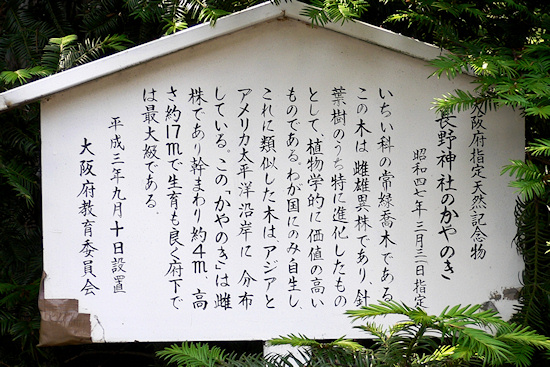 大阪府指定天然記念物
長野神社のかやのき
昭和四七年三月三一日指定
いちい科の常緑喬木である
この木は雌雄異株であり、針
葉樹のうち特に進化したもの
として、植物学的に価値の高い
ものである。わが国にのみ自生し、
これに類似した木はアジアと
アメリカ太平洋沿岸に分布
している。この「かやのき」は雌
株であり幹まわり約4m、高
さ約17mで生育も良く府下で
は最大級である。
平成三年九月十日設置
大阪府教育委員会